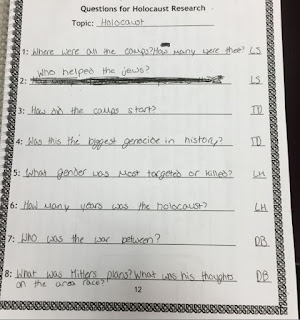 Questions for Holocaust Research
Topic: Holocaust
1: Where were all the camps? How many were there? LS
Who helped the jews?
2: LS
3: How did the camps start? TD
4: Was this the biggest genocide in history? TD
5: What gender was most targeted or killed? LH
6: How many years was the holocaust? LH
7: Who was the war between? DB
8: What was Hitlers plans? What was his thoughts DB
on the area race?
12